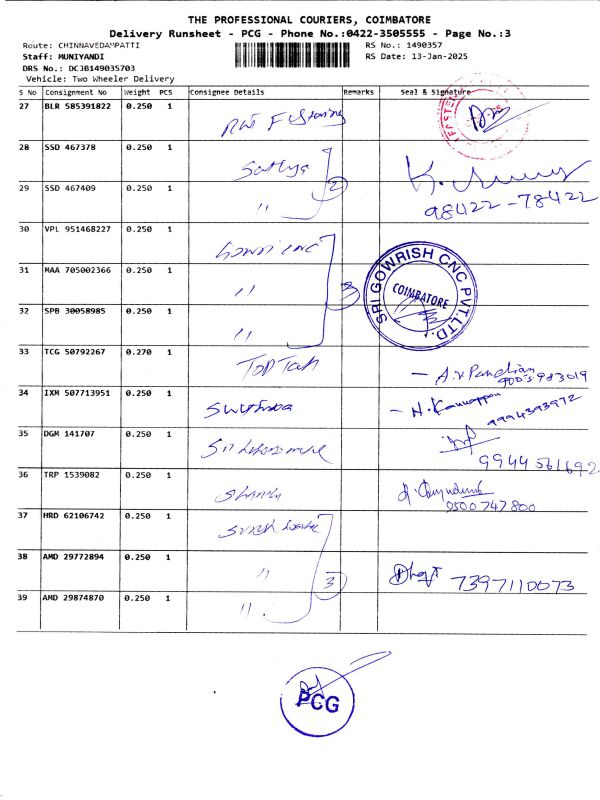 THE PROFESSIONAL COURIERS, COIMBATORE
Delivery Runsheet - PCG - Phone No.:0422-3505555 - Page No.:3
Route: CHINNAVEDAMPATTI RS No.: 1490357
Staff: MUNIYANDI RS Date: 13-Jan-2025
DRS No.: DCJB149035703
Vehicle: Two Wheeler Delivery
S No Consignment No Weight PCS Consignee Details Remarks Seal & Signature
27 BLR 585391822 0.250 1
28 SSD 467378 0.250 1 Sathya
29 SSD 467409 0.250 1 " 2
98422-78422
30 VPL 951468227 0.250 1 Gowri CNC
31 MAA 705002366 0.250 1 " 3
SRI GOWRISH CNC PVT. LTD. COIMBATORE
32 SPB 30058985 0.250 1 "
33 TCG 50792267 0.270 1 - A.V Pandian
34 IXM 507713951 0.250 1
9994393972
35 DGM 141707 0.250 1
9944561692
36 TRP 1539082 0.250 1
9500747800
37 HRD 62106742 0.250 1
38 AMD 29772894 0.250 1 " 3 7397110073
39 AMD 29874870 0.250 1 "
PCG